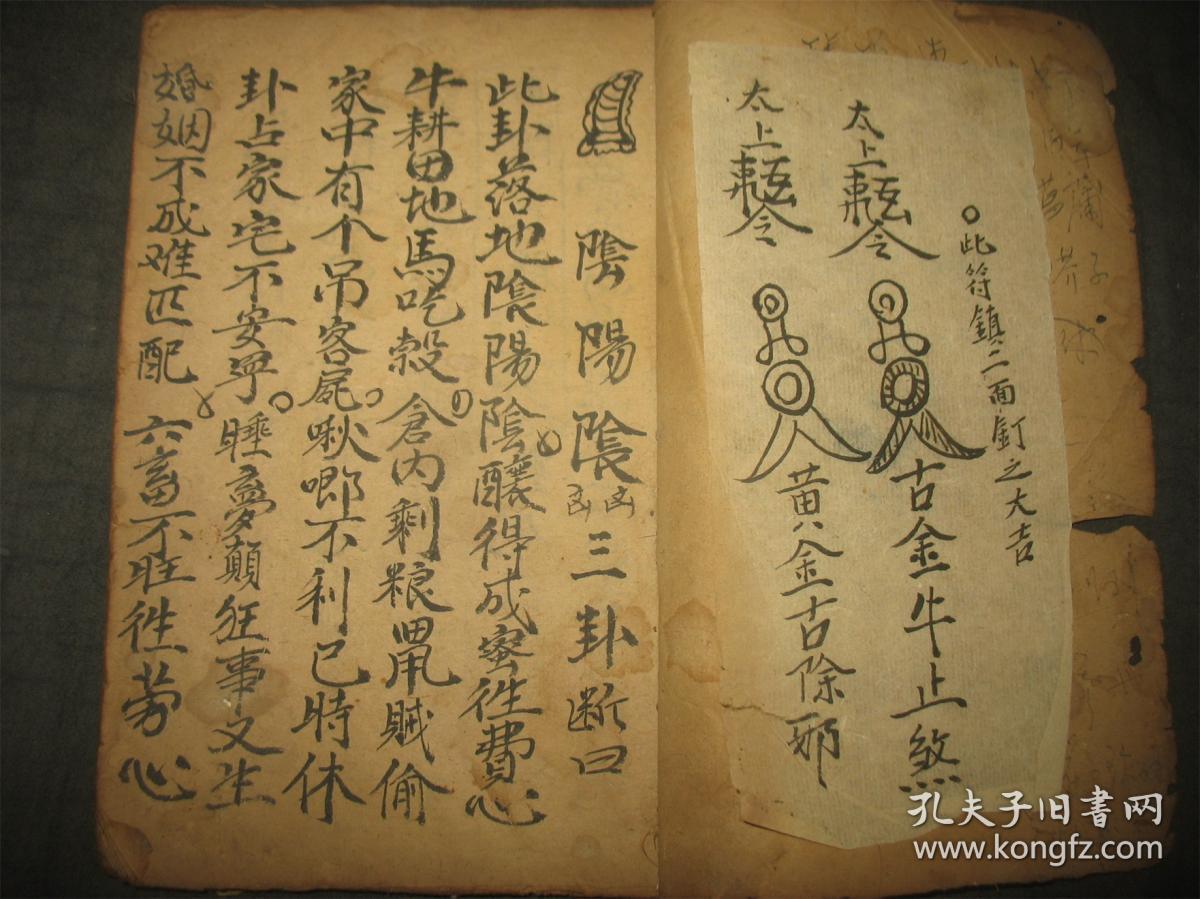 此符鎮二面釘之大吉
太上
令
古金牛止煞
太上
令
黄金古除邪
陰陽陰 凶凶 三卦断曰
此卦落地陰陽陰釀得成蜜徃費心
牛耕田地馬吃穀倉内剩粮鼠贼偷
家中有个吊客屍啾唧不利已時休
卦占家宅不安寜睡夢顛狂事又生
婚姻不成难匹配六畜不旺徃劳心
孔夫子旧书网
www.kongfz.com